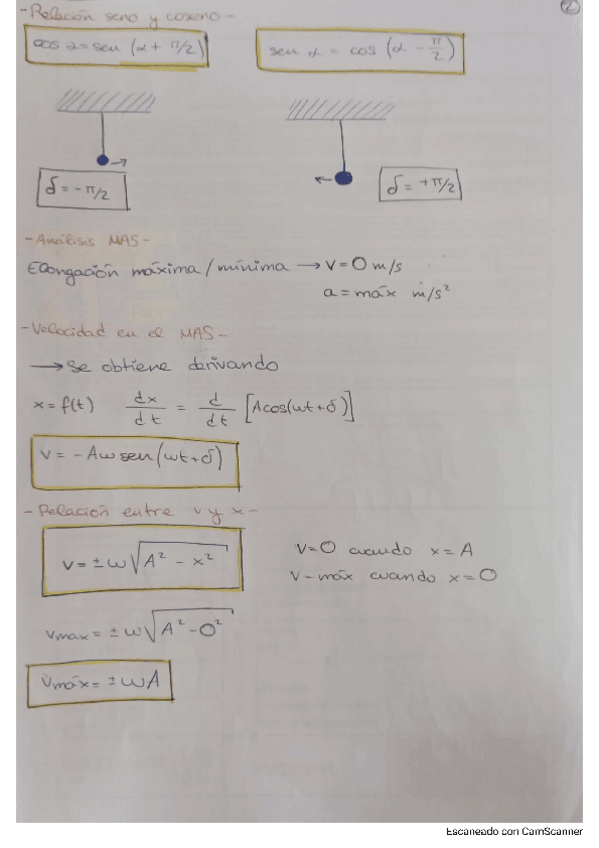 -Relación seno y coseno-
2
cos α = sen (α + π/2)
sen α = cos (α - π/2)
δ = -π/2
δ = +π/2
-Análisis MAS-
Elongación máxima/mínima → v = 0 m/s
a = máx m/s²
-Velocidad en el MAS-
→ Se obtiene derivando
x = f(t) dx/dt = d/dt [A cos(ωt+δ)]
v = -Aω sen(ωt+δ)
-Relación entre v y x-
v = ±ω√(A² - x²)
v=0 cuando x=A
v-máx cuando x=0
vmax = ±ω√(A²-0²)
vmáx = ±ωA
Escaneado con CamScanner